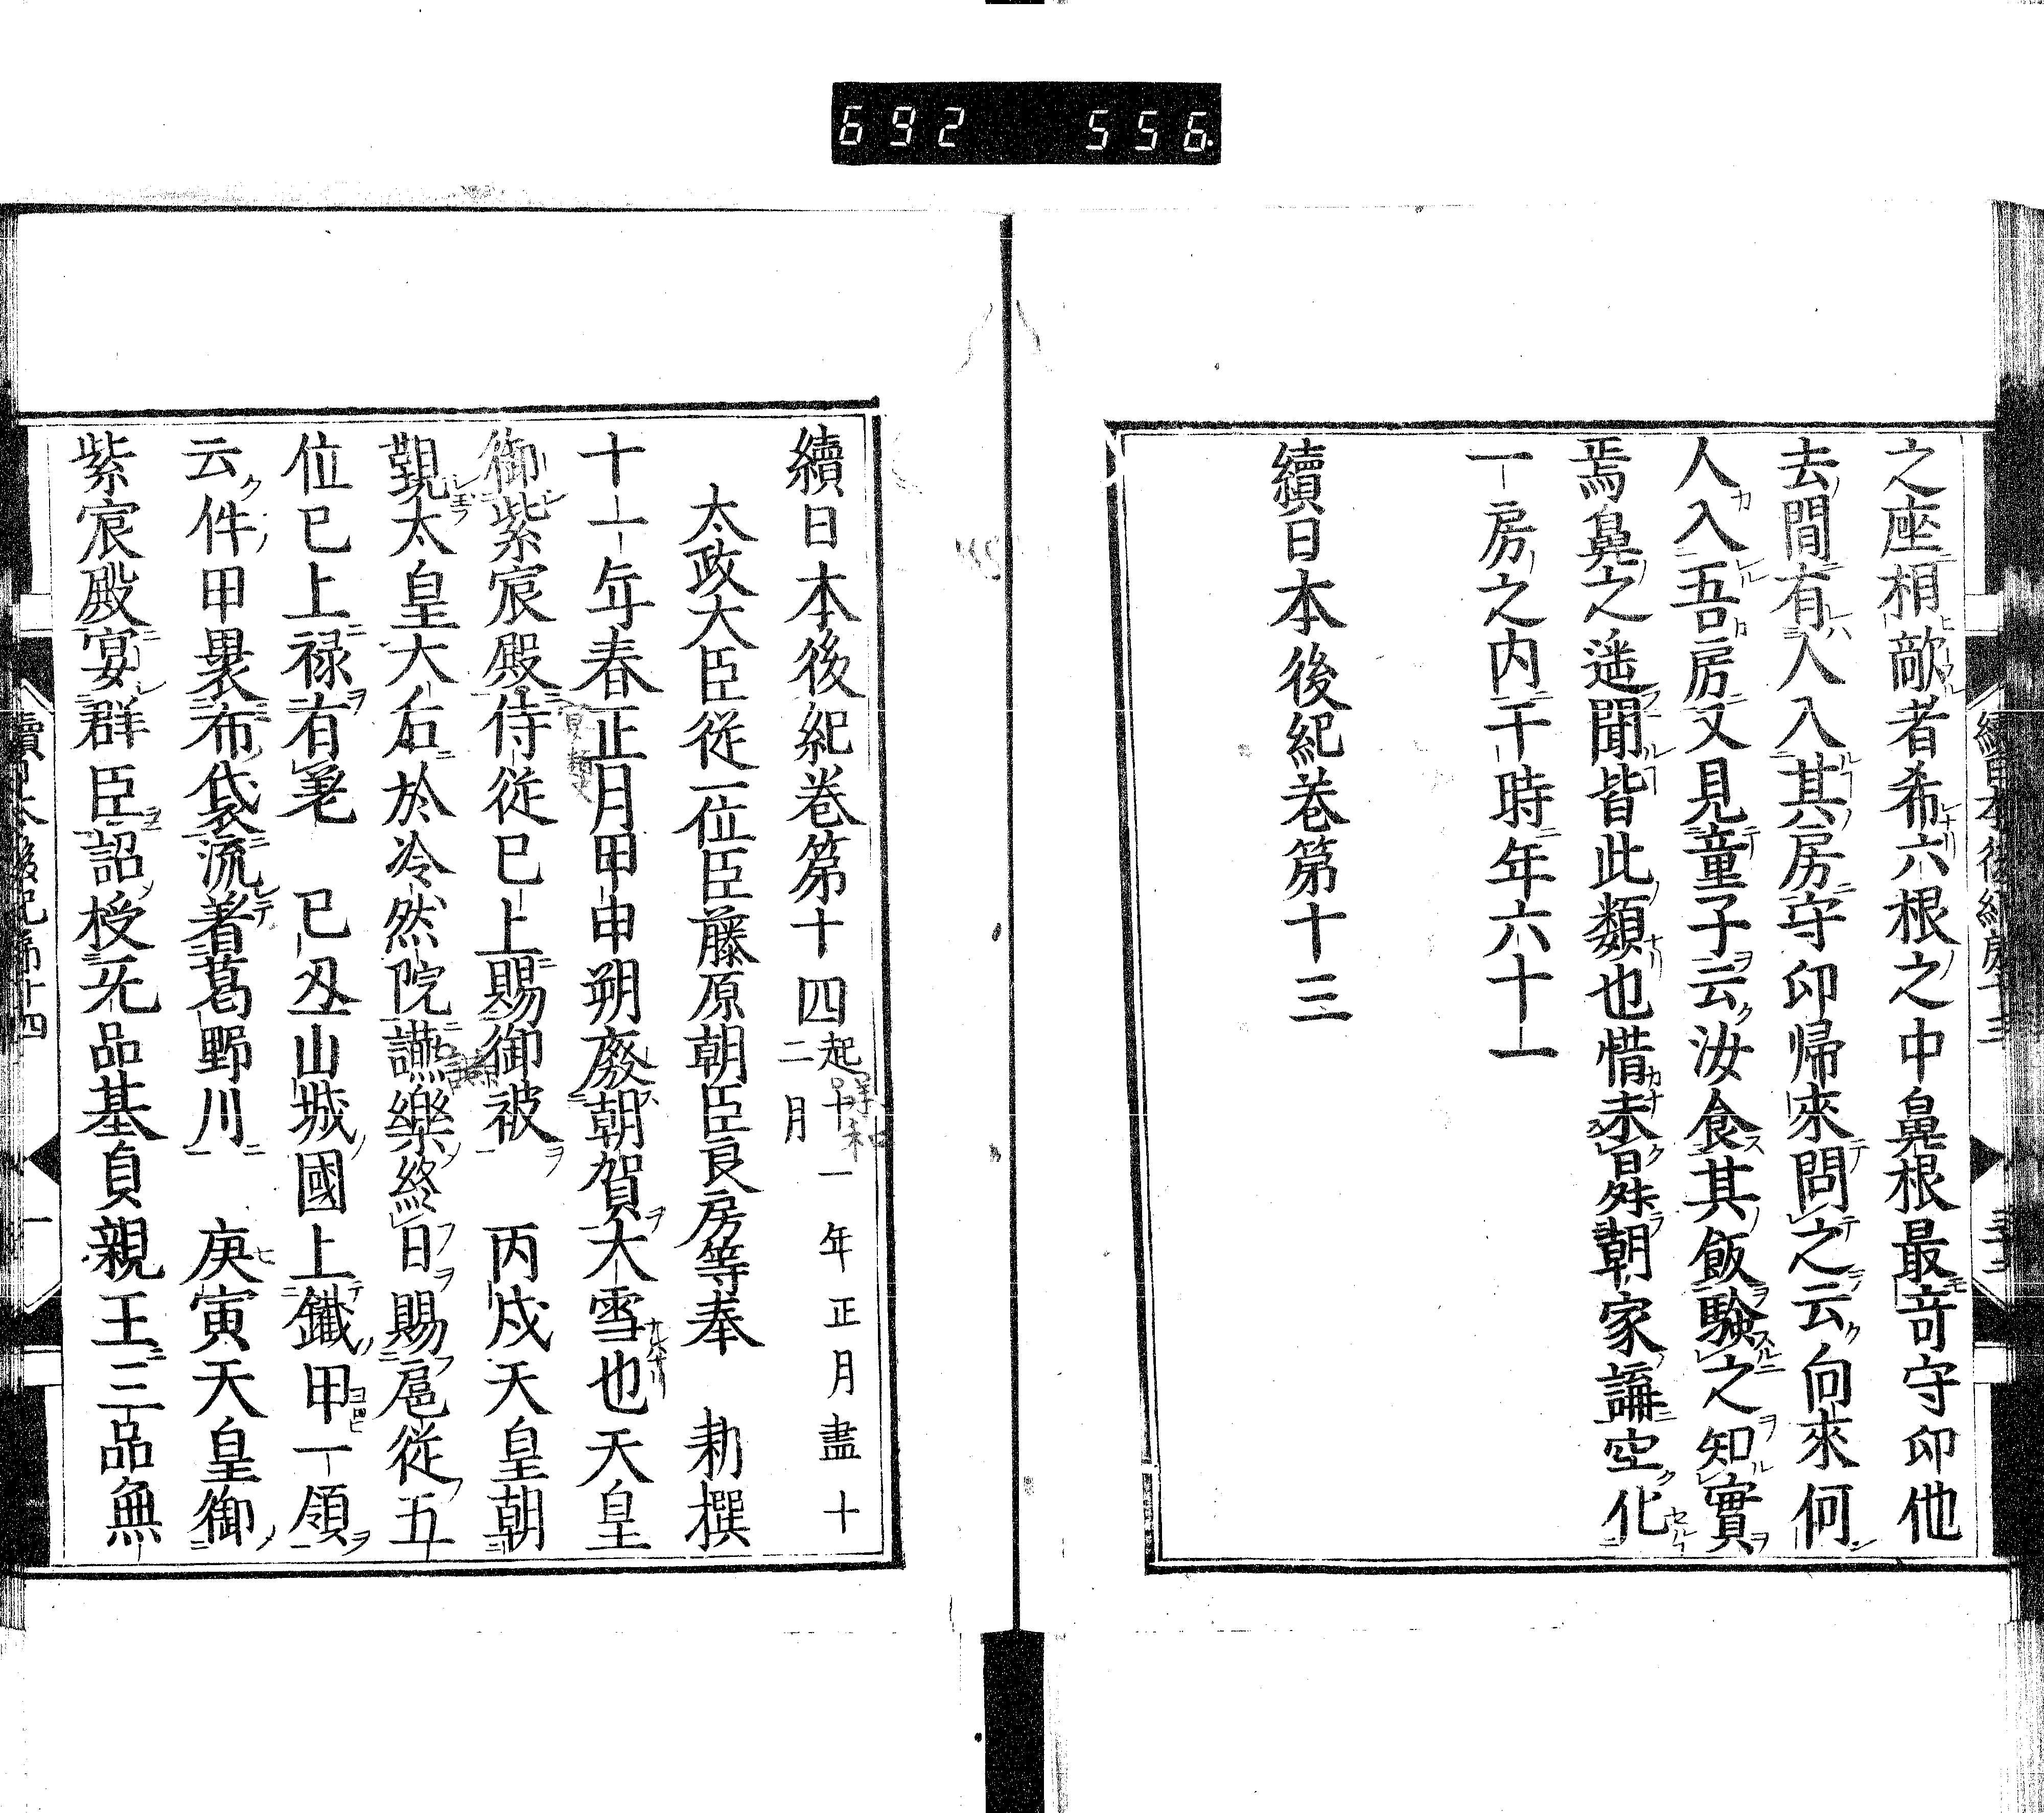 692 556
之座相敵者希六根之中鼻根最竒守印他
去間有人入其房守印帰來問之云向來何
人入吾房又見童子云汝食其飯驗之知實
焉鼻之遥聞皆此類也惜未昇朝家論空化
一房之内于時年六十一
續日本後紀巻第十三
續日本後紀巻第十四起十一年正月盡十二月
太政大臣從一位臣藤原朝臣良房等奉 勅撰
十一年春正月甲申朔廢朝賀大雪也天皇
御紫宸殿侍從已上賜御被 丙戌天皇朝
覲太皇大后於冷然院讌樂終日賜扈從五
位已上禄有差 已丑山城國上鐵甲一領
云件甲褁布袋流著葛野川 庚寅天皇御
紫宸殿宴群臣詔授无品基貞親王三品無